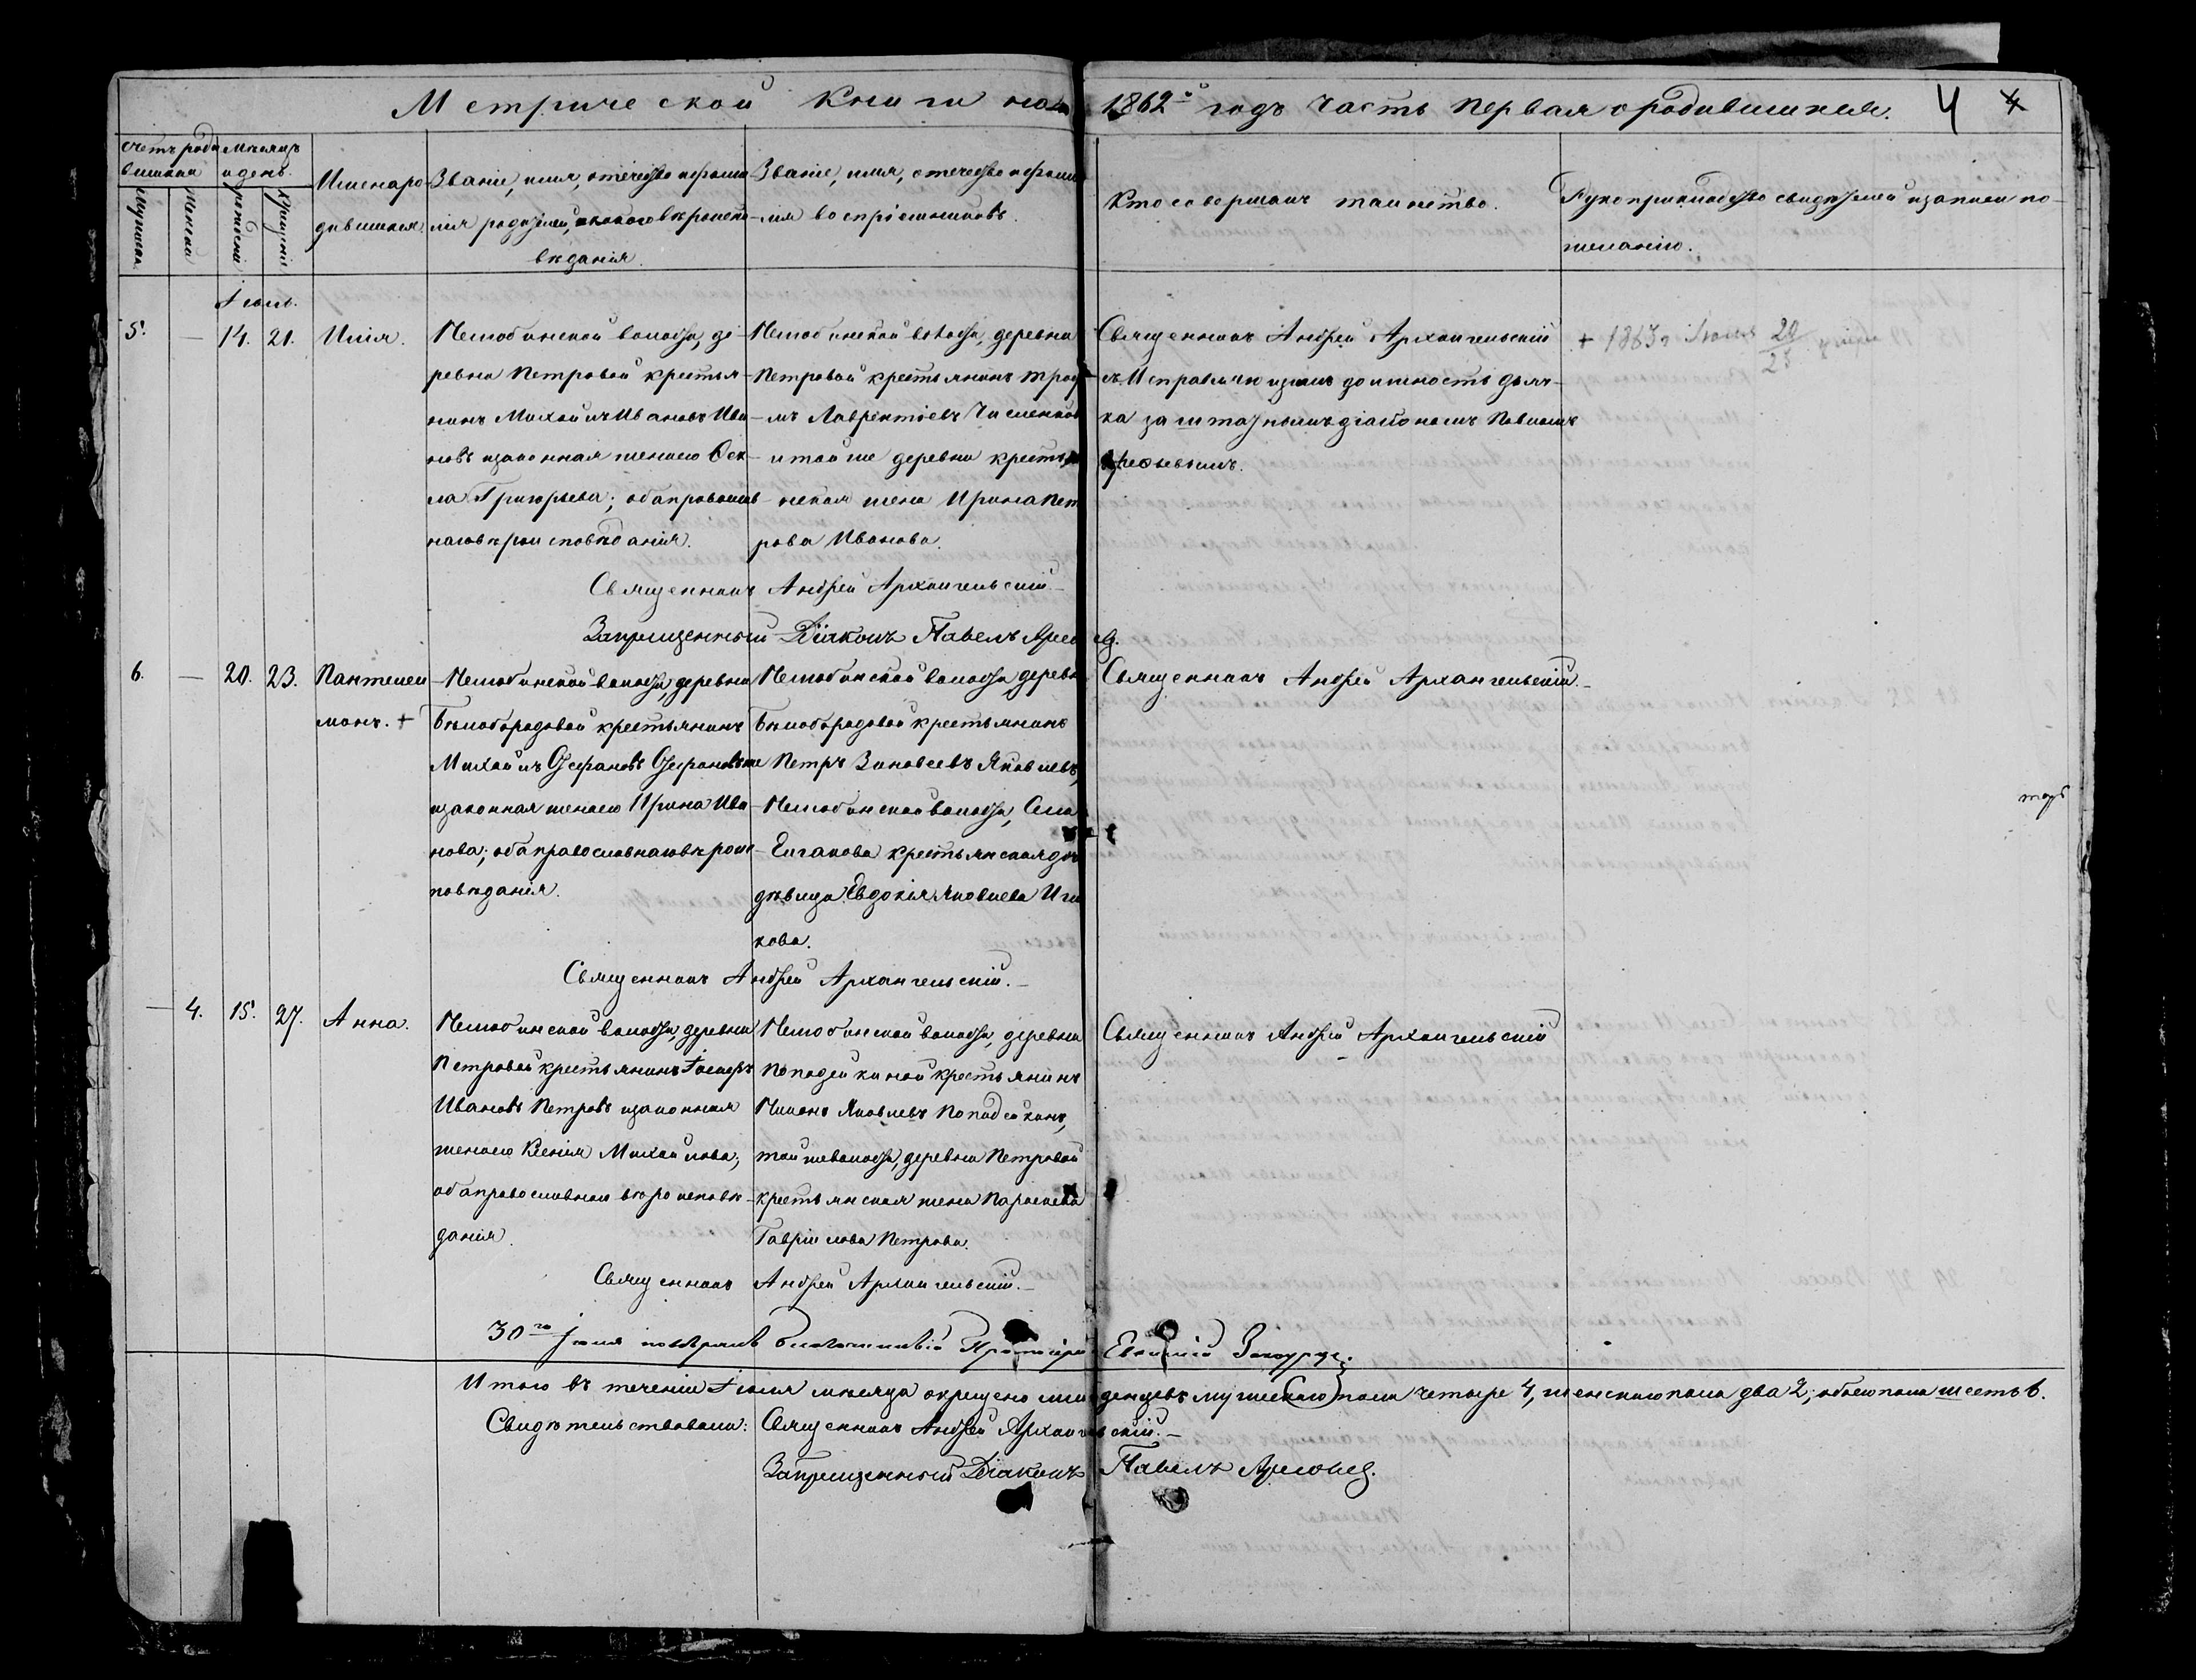 Метрической книги на 1862й годъ часть первая о родившихся. 4
Счетъ роди- Мѣсяцъ
вшихся и день.
Мужска Женска рожденія крещенія
Имена ро-
дившихся.
Званіе, имя, отечество и фами-
лія родителей, и какого вѣроиспо-
вѣданія.
Званіе, имя, отечество и фами-
лія воспріемниковъ.
Кто совершалъ таинство.
Рукоприкладство свидѣтелей и записи по
желанію.
Іюль.
5. — 14. 21. Илія.
волости, де-
ревни Петровой крестья-
нинъ Михаилъ Ивановъ Ива-
новъ и законная жена его Оек-
ла Григорьева; оба православ-
наго вѣроисповѣданія.
волости, деревни
Петровой крестьянинъ
Лаврентіевъ
и той же деревни крестья-
нская жена Ирина Пет-
рова Иванова.
Священникъ Андрей Архангельскій
съ исправляющимъ должность дьяч-
ка заштатнымъ діакономъ Павломъ
+ 1863 г Іюля 20/23
Священникъ Андрей Архангельскій.
Запрещенный Діаконъ Павелъ
6. — 20. 23. Пантелей-
монъ. +
волости, деревни
Бѣлобородовой крестьянинъ
Михаилъ Стефановъ Стефановъ же
и законная жена его Ирина Ива-
нова; оба православнаго вѣроис-
повѣданія.
волости, деревни
Бѣлобородовой крестьянинъ
Петръ Зиновеевъ Яковлевъ,
волости, Села
Елгакова крестьянская дочь
дѣвица Евдокія Яковлева
кова.
Священникъ Андрей Архангельскій.
Священникъ Андрей Архангельскій.
— 4. 15. 27. Анна.
волости, деревни
Петровой крестьянинъ Іосифъ
Ивановъ Петровъ и законная
жена его Ксенія Михайлова;
оба православнаго вѣроисповѣ-
данія.
волости, деревни
Пополейкиной крестьянинъ
Яковлевъ
той же волости, деревни Петровой
крестьянская жена Параскева
Гавріилова Петрова.
Священникъ Андрей Архангельскій
Священникъ Андрей Архангельскій.
30го Іюля повѣрялъ Благочинный Протоіерей Евфимій
Итого въ теченіи Іюля мѣсяца окрещено младенцевъ мужескаго пола четыре 4, женскаго пола два 2; обоего пола шесть 6.
Свидѣтельствовали: Священникъ Андрей Архангельскій.
Запрещенный Діаконъ Павелъ